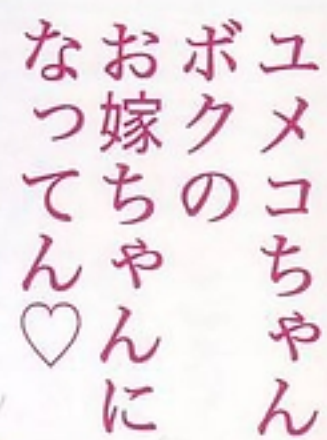 ユメコちゃん
ボクの
お嫁ちゃんに
なってん♡